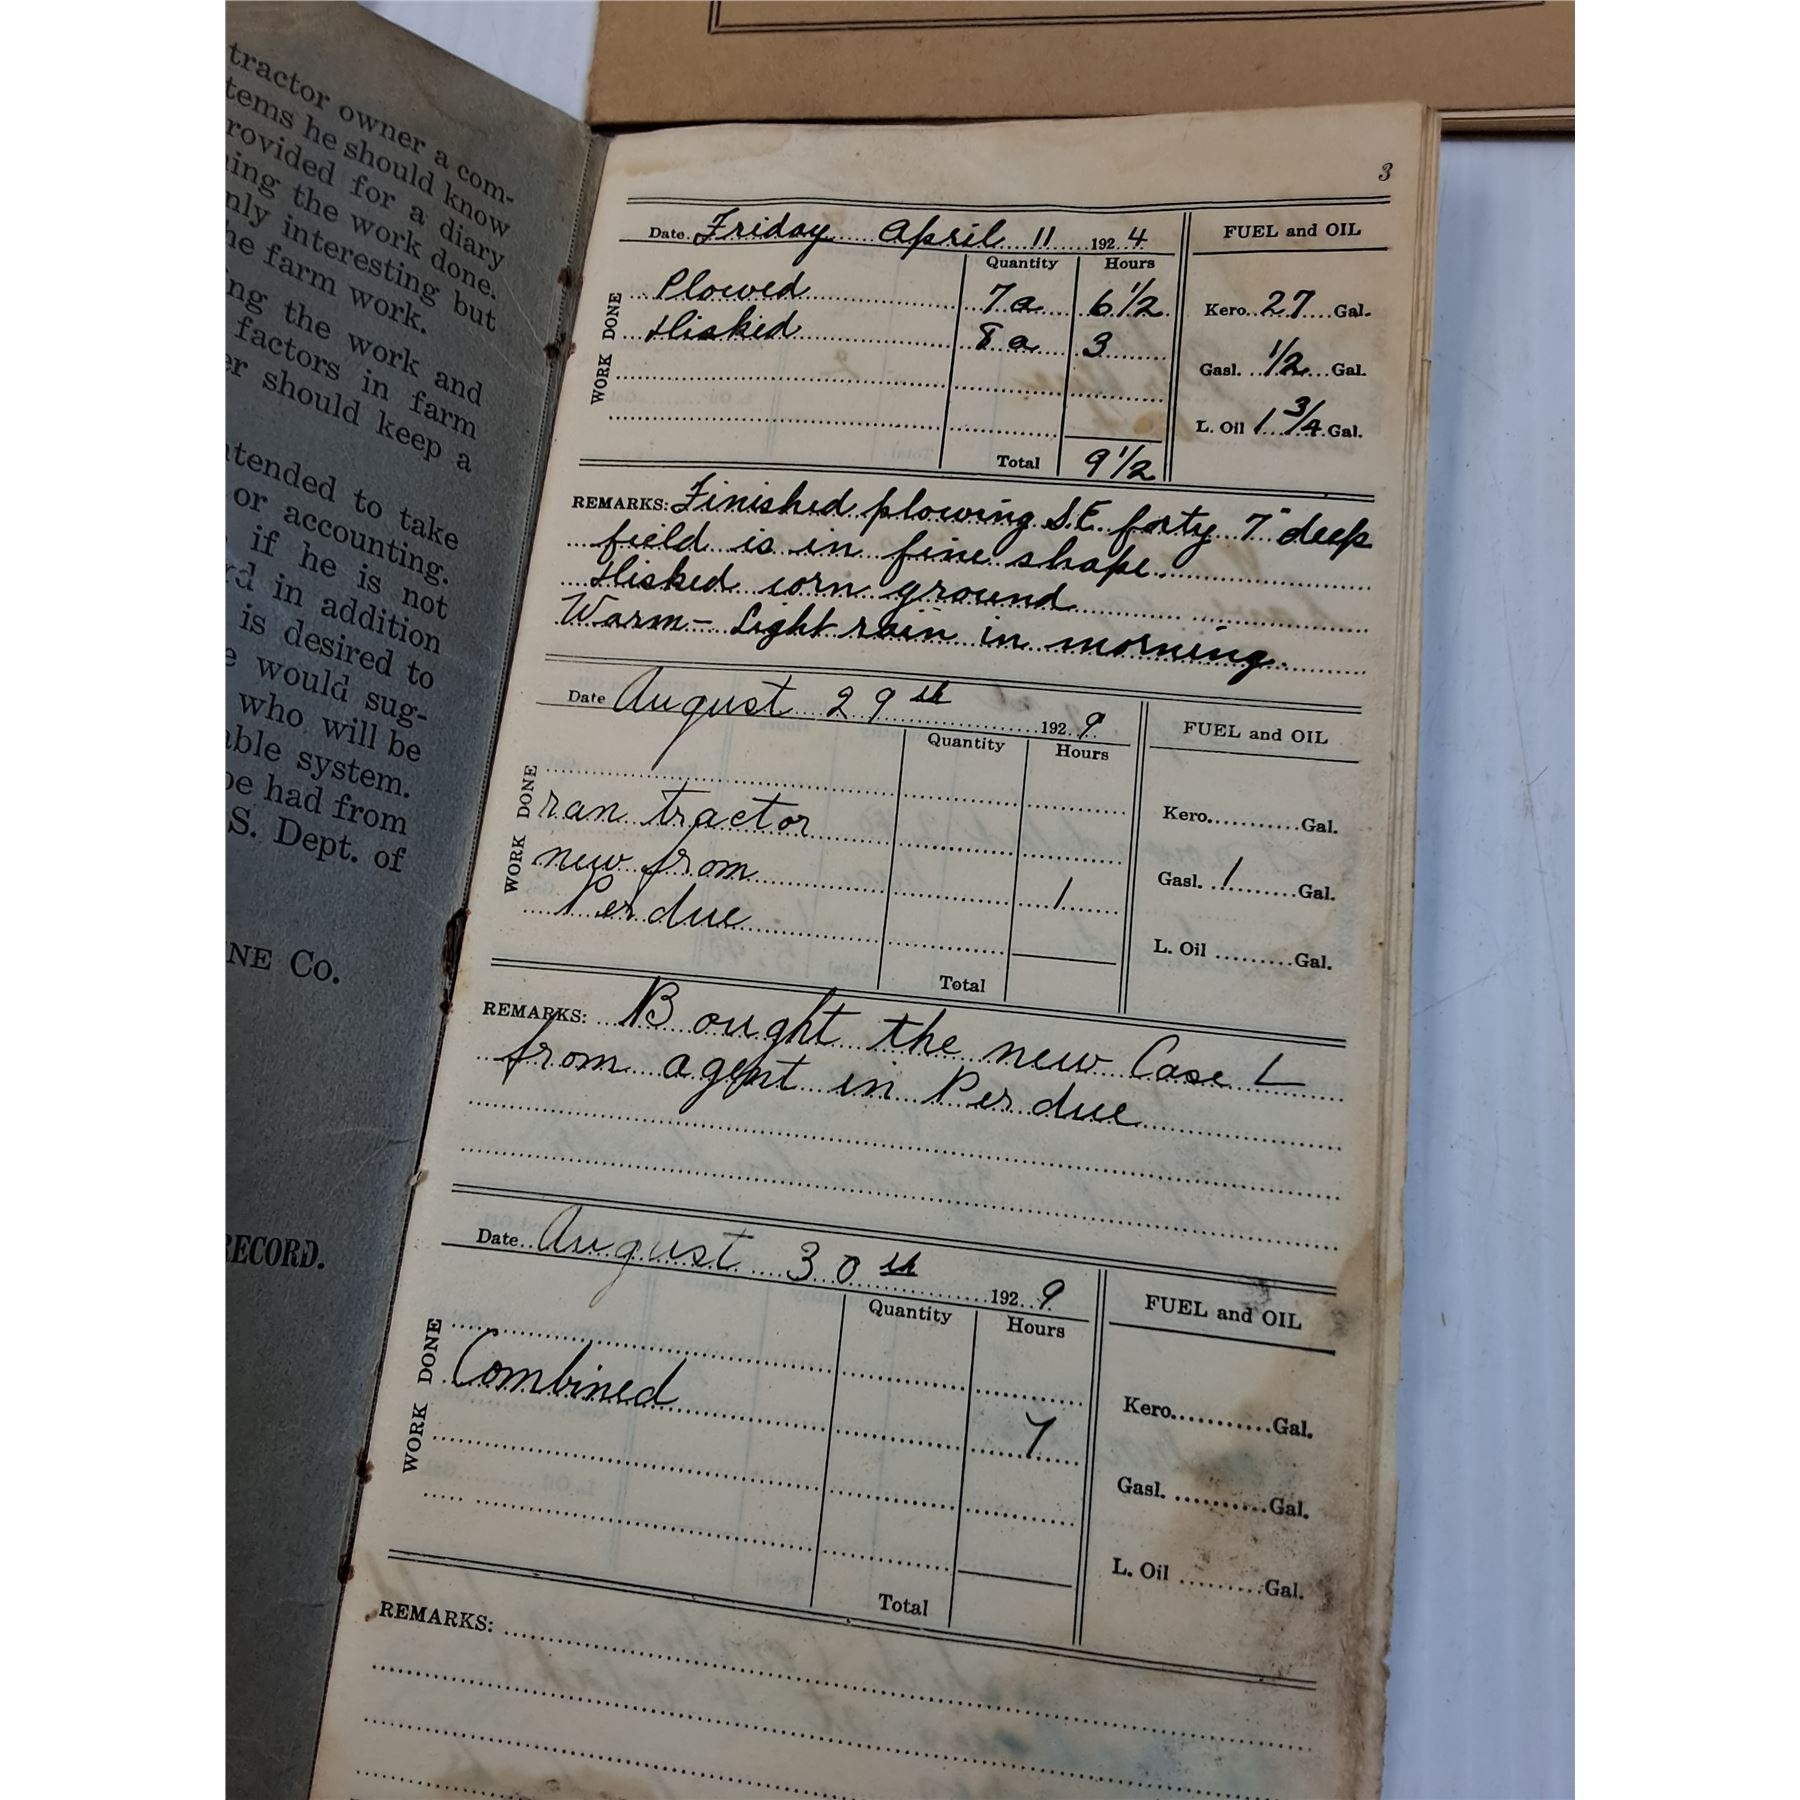 tractor owner a com-
tems he should know
rovided for a diary
ing the work done.
nly interesting but
he farm work.
ng the work and
factors in farm
er should keep a
tended to take
or accounting.
if he is not
rd in addition
is desired to
e would sug-
who will be
able system.
be had from
S. Dept. of
NE Co.
RECORD.
3
Date Friday April 11 1924 FUEL and OIL
Quantity Hours
WORK DONE
Plowed 7 a 6 1/2 Kero. 27 Gal.
Disked 8 a 3 Gasl. 1/2 Gal.
L. Oil 1 3/4 Gal.
Total 9 1/2
REMARKS: Finished plowing S.E. forty 7" deep
field is in fine shape.
Disked corn ground
Warm - Light rain in morning.
Date August 29th 1929 FUEL and OIL
Quantity Hours
WORK DONE
ran tractor Kero. Gal.
new from 1 Gasl. 1 Gal.
Perdue L. Oil Gal.
Total
REMARKS: Bought the new Case L
from agent in Perdue
Date August 30th 1929 FUEL and OIL
Quantity Hours
WORK DONE
Combined 7 Kero. Gal.
Gasl. Gal.
L. Oil Gal.
Total
REMARKS: